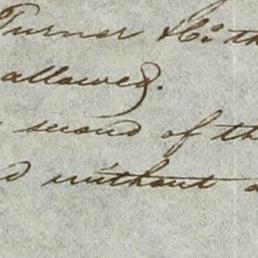 Turner
allowed.
second of th
without